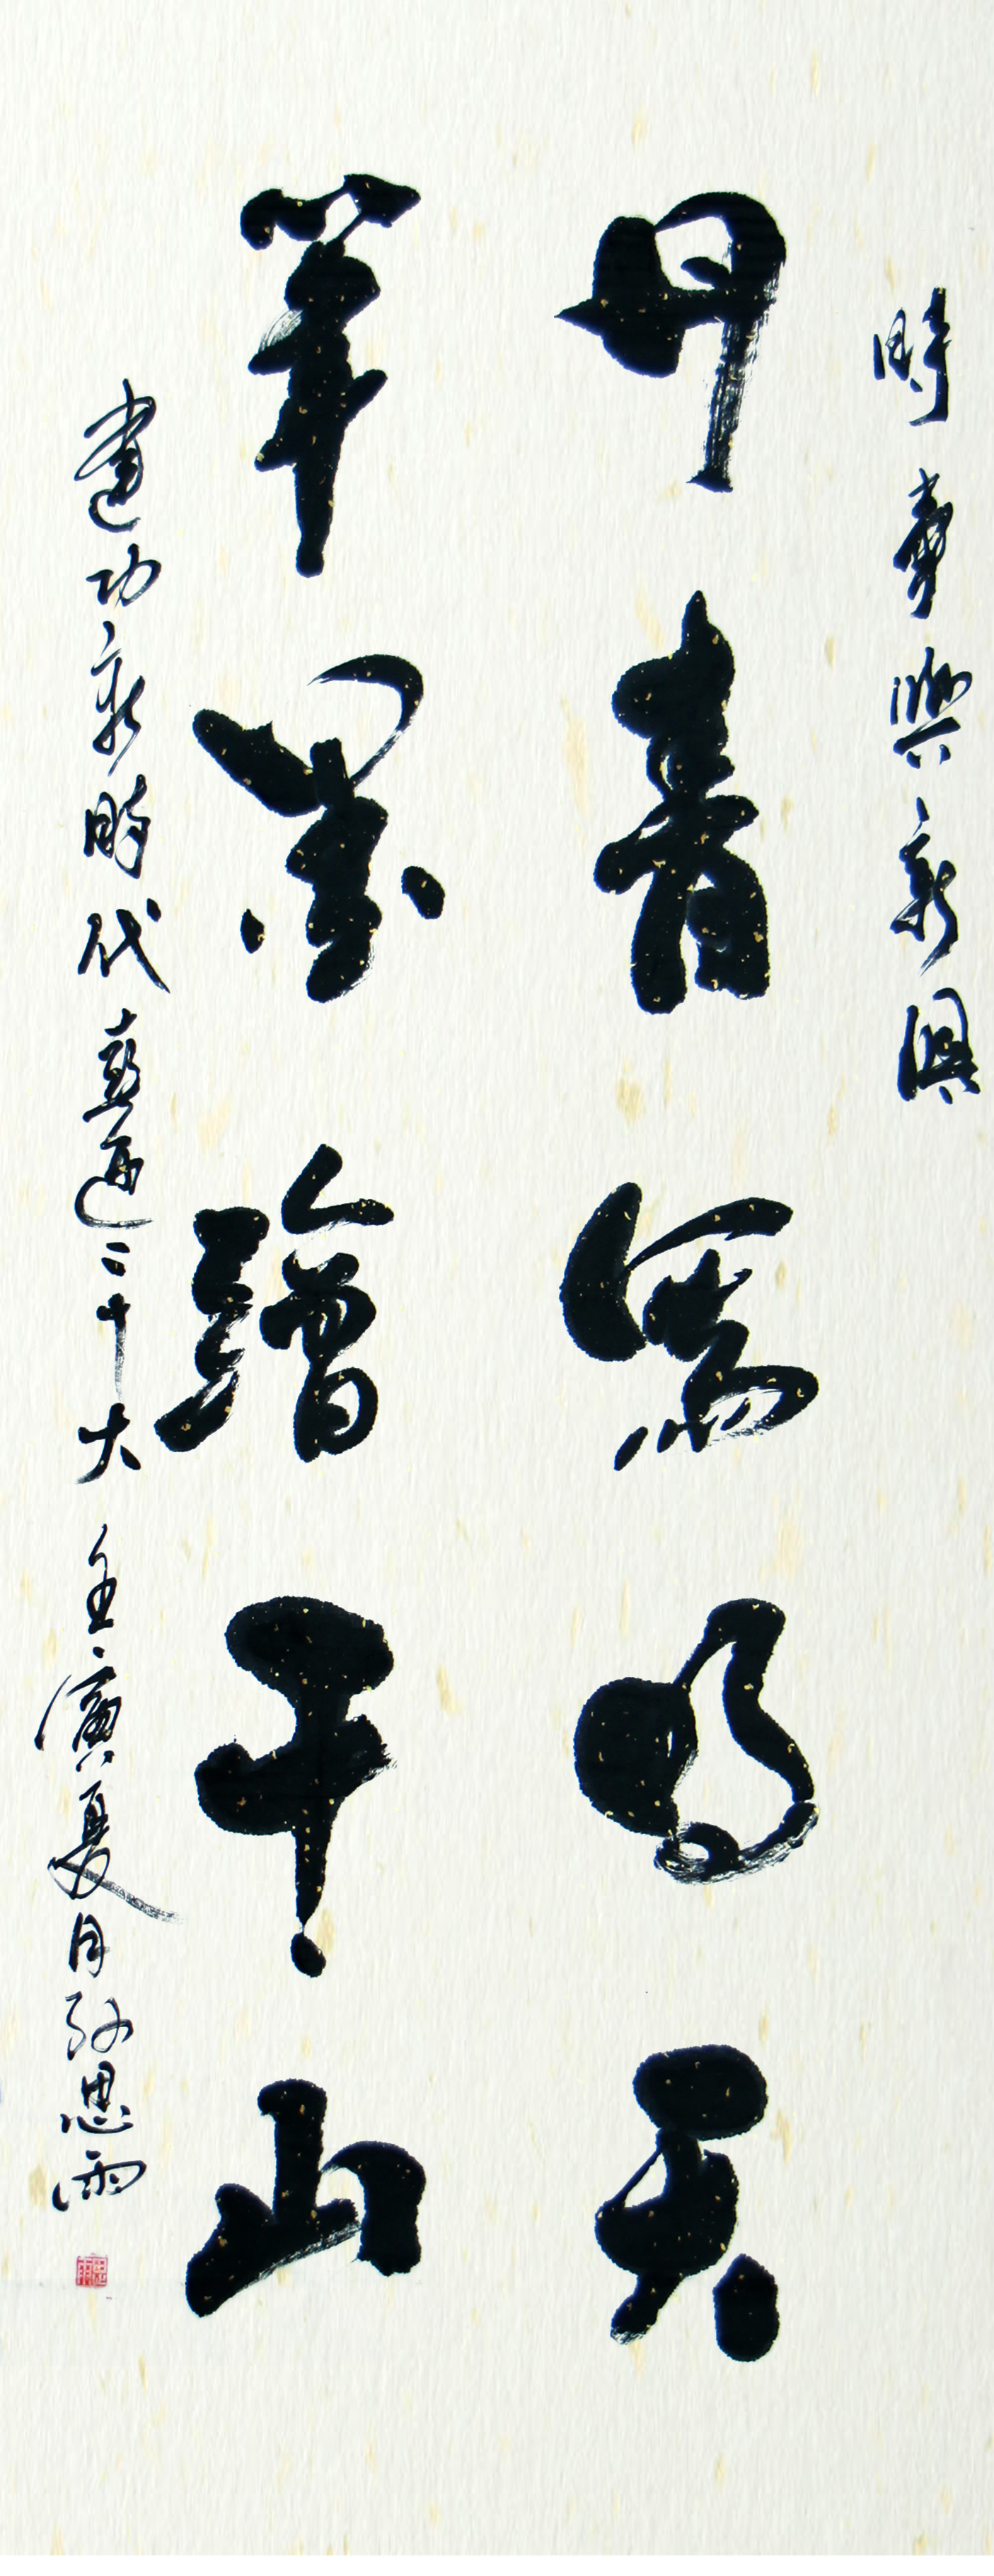 時 與新俱
丹青寫明天
筆墨繪千山
建功新時代喜迎二十大 壬寅夏月孫思雨